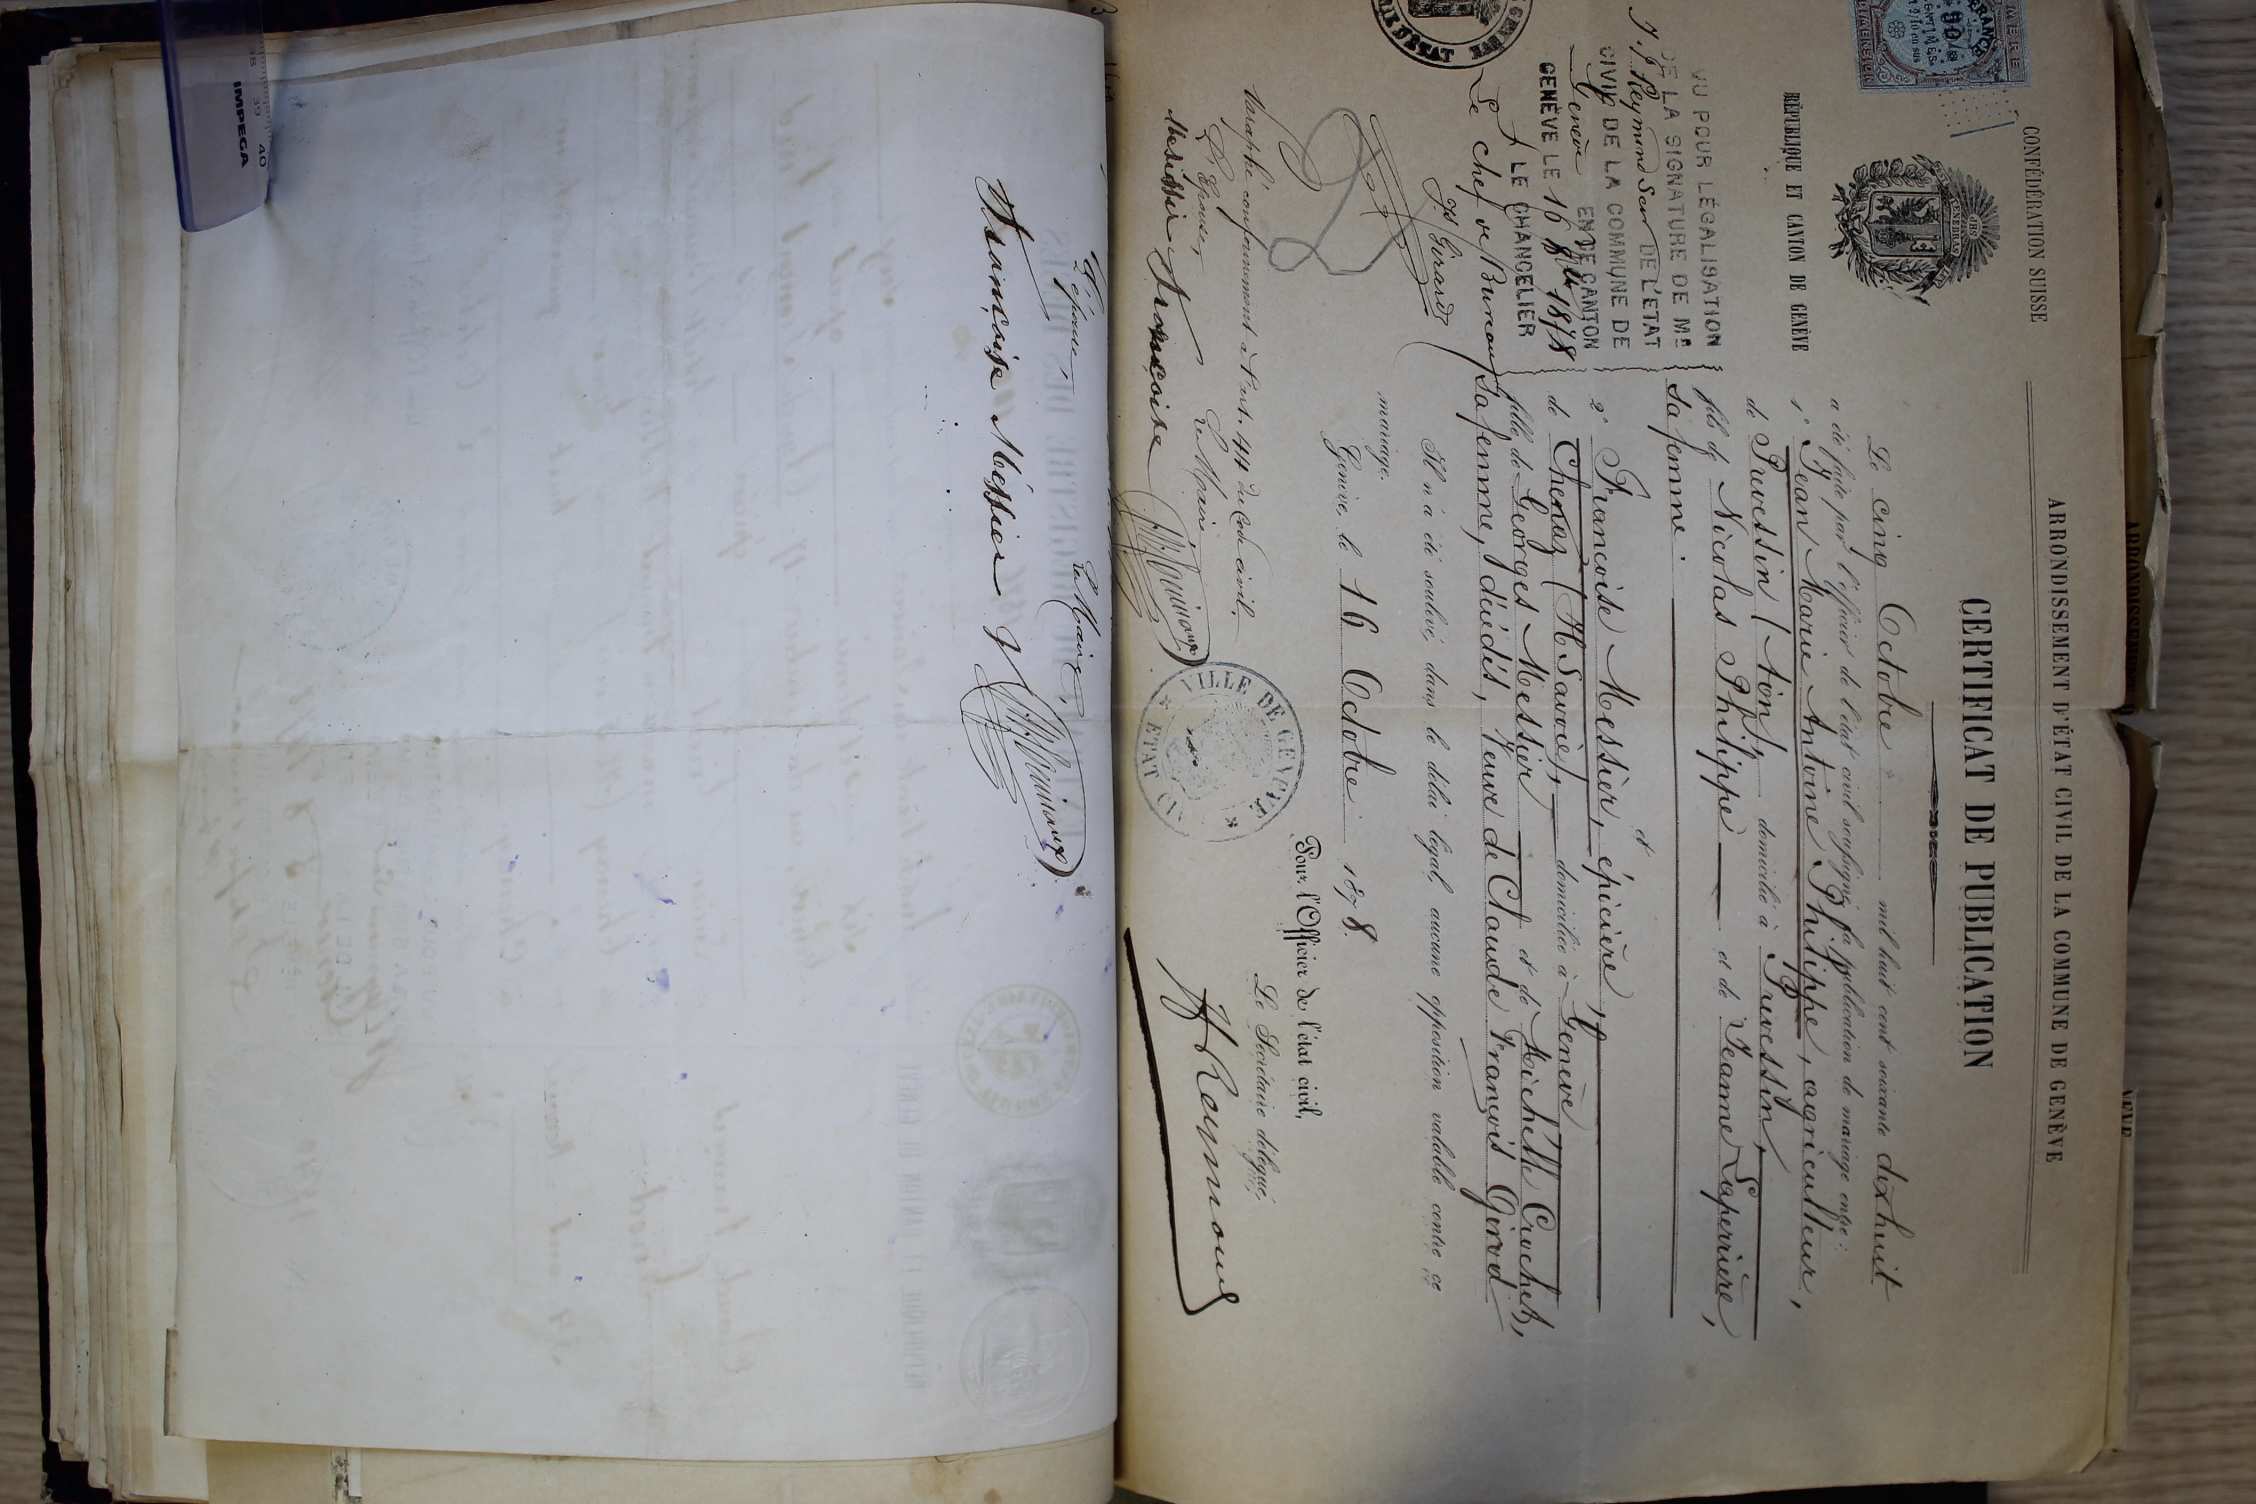 CONFÉDÉRATION SUISSE
RÉPUBLIQUE ET CANTON DE GENÈVE
ARRONDISSEMENT D'ÉTAT CIVIL DE LA COMMUNE DE GENÈVE
CERTIFICAT DE PUBLICATION
Le cinq Octobre mil huit cent soixante dixhuit
a été faite par l'officier de l'état civil soussigné la publication de mariage entre:
1° Jean Marie Antoine Philippe, agriculteur,
de Prevessin (Ain), domicilié à Prevessin,
fils de Nicolas Philippe et de Jeanne Laperrière,
sa femme.
et
2° Françoise Messier, épicière,
de Chenaz (Hte Savoie), domiciliée à Genève
fille de Georges Messier et de Michelle Crochet,
sa femme, décédés, veuve de Claude François Girod
Il n'a été soulevé, dans le délai légal, aucune opposition valable contre ce
mariage.
Genève, le 16 Octobre 1878.
Pour l'Officier de l'état civil,
Le Secrétaire délégué,
J Reymond
VU POUR LÉGALISATION
DE LA SIGNATURE DE Mr
J. J. Reymond Secr DE L'ETAT
CIVIL DE LA COMMUNE DE
Genève EN CE CANTON
GENÈVE LE 16 8bre 1878
LE CHANCELIER
Le chef de Bureau
Js Girard
Paraphé conformément à l'art. 44 du Code civil.
L'Epouse, Le Maire,
Messier Françoise
VILLE DE GENÈVE
ETAT CIVIL
L'épouse, Le Maire,
Françoise Messier
IMPEGA
39 40